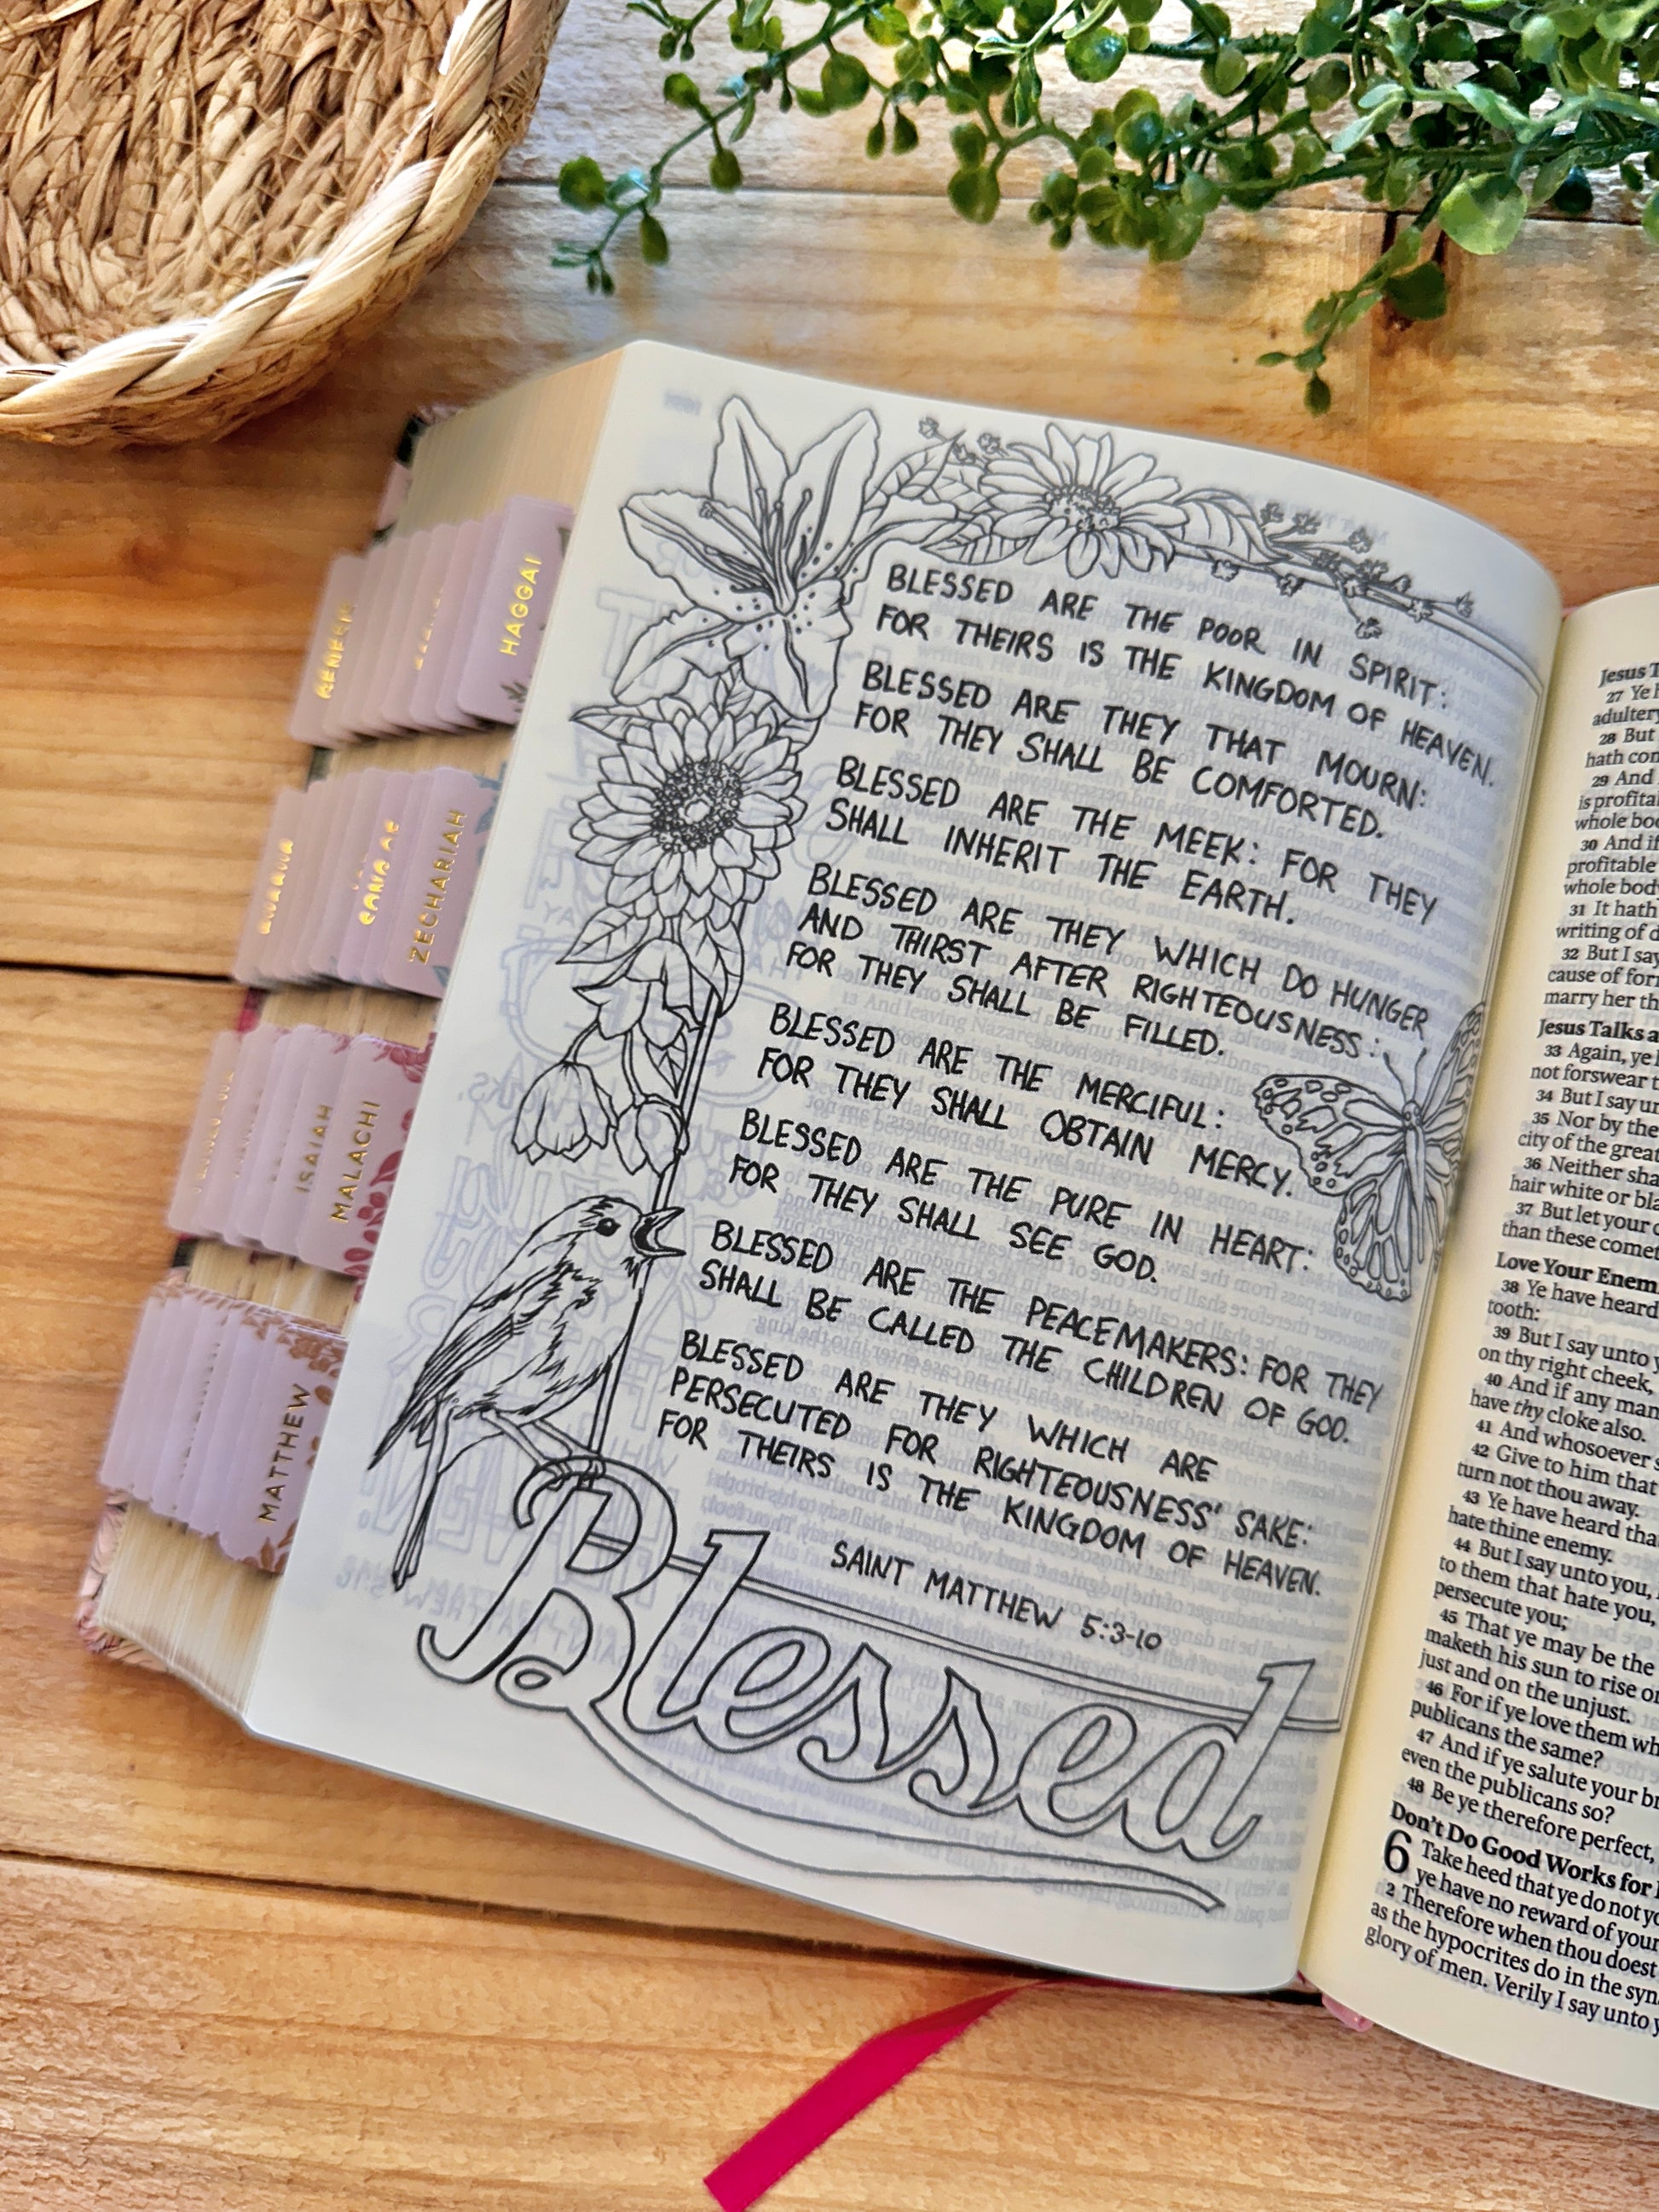 HAGGAI
ZECHARIAH
ISAIAH
MALACHI
MATTHEW
BLESSED ARE THE POOR IN SPIRIT:
FOR THEIRS IS THE KINGDOM OF HEAVEN.
BLESSED ARE THEY THAT MOURN:
FOR THEY SHALL BE COMFORTED.
BLESSED ARE THE MEEK: FOR THEY
SHALL INHERIT THE EARTH.
BLESSED ARE THEY WHICH DO HUNGER
AND THIRST AFTER RIGHTEOUSNESS:
FOR THEY SHALL BE FILLED.
BLESSED ARE THE MERCIFUL:
FOR THEY SHALL OBTAIN MERCY.
BLESSED ARE THE PURE IN HEART:
FOR THEY SHALL SEE GOD.
BLESSED ARE THE PEACEMAKERS: FOR THEY
SHALL BE CALLED THE CHILDREN OF GOD.
BLESSED ARE THEY WHICH ARE
PERSECUTED FOR RIGHTEOUSNESS' SAKE:
FOR THEIRS IS THE KINGDOM OF HEAVEN.
SAINT MATTHEW 5:3-10
Blessed
Jesus
27 Ye
adultery
28 But
hath
29 And
is
whole
30 And if
profitable
whole body
31 It hath
writing of
32 But I say
cause of
marry her
Jesus Talks
33 Again, ye
not forswear
34 But I say
35 Nor by the
city of the great
36 Neither
hair white or
37 But let your
than these
Love Your
38 Ye have heard
tooth:
39 But I say unto
on thy right cheek,
40 And if any man
have thy cloke also.
41 And whosoever
42 Give to him that
turn not thou away.
43 Ye have heard
hate thine enemy.
44 But I say unto you,
to them that hate you,
persecute you;
45 That ye may be the
maketh his sun to rise
just and on the unjust.
46 For if ye love them
publicans the same?
47 And if ye salute your
even the publicans so?
48 Be ye therefore perfect,
Don't Do Good Works for
6 Take heed that ye do not
ye have no reward of your
2 Therefore when thou doest
as the hypocrites do in the
glory of men. Verily I say unto